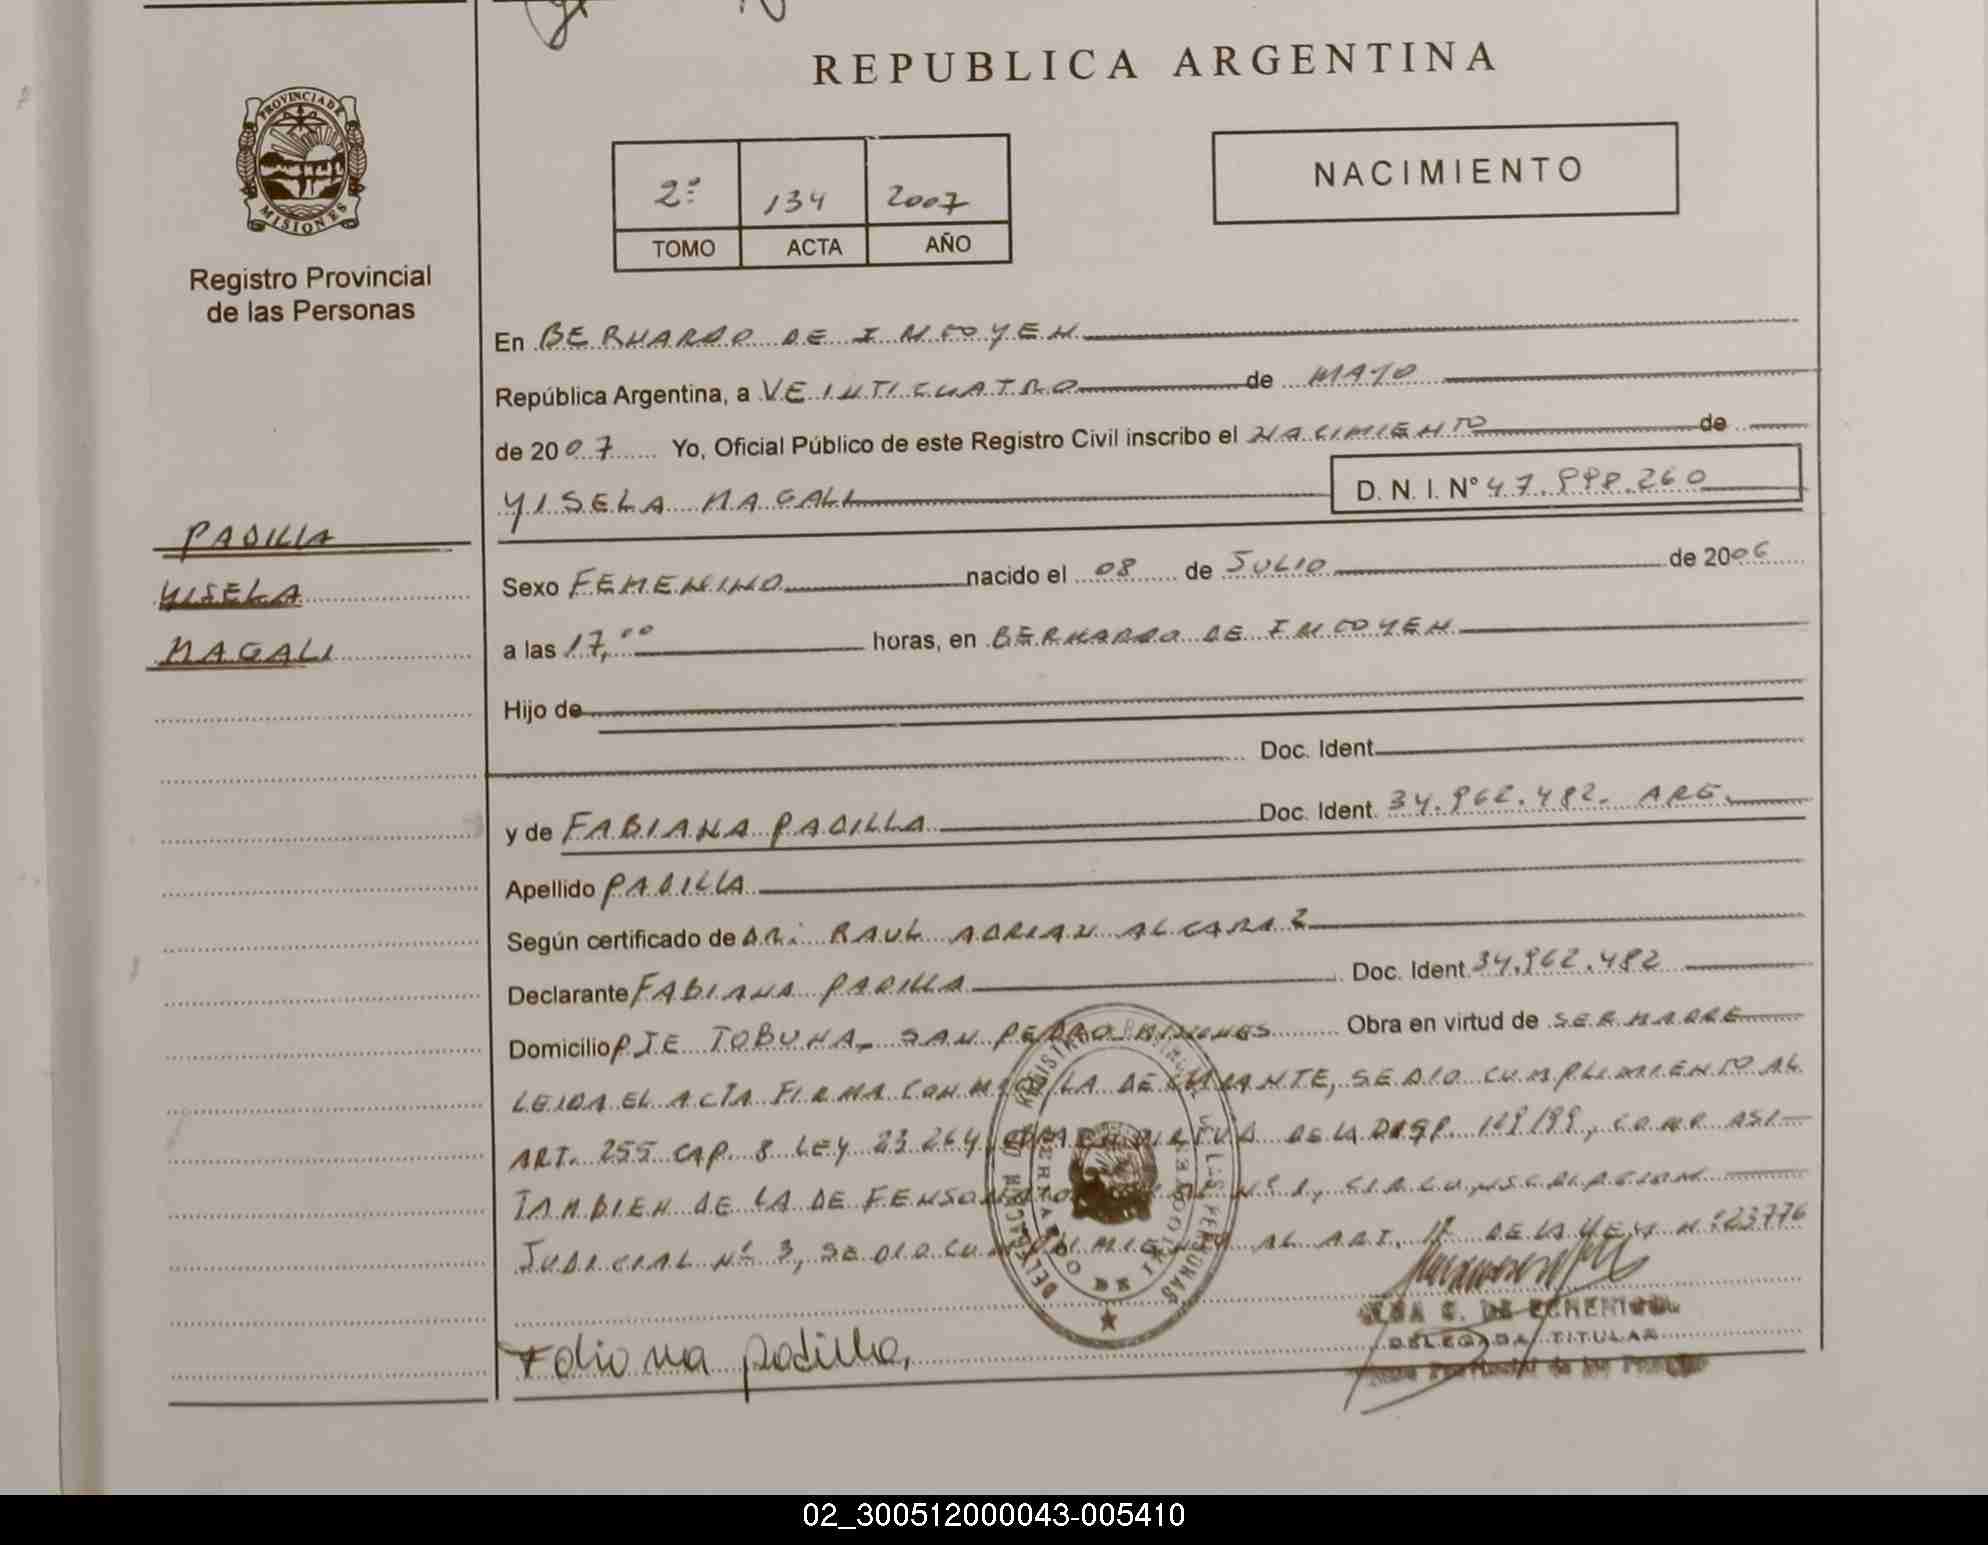 REPUBLICA ARGENTINA
PROVINCIA DE
MISIONES
Registro Provincial
de las Personas
2º 134 2007
TOMO ACTA AÑO
NACIMIENTO
En BERNARDO DE IRIGOYEN
República Argentina, a VEINTICUATRO de MAYO
de 2007 Yo, Oficial Público de este Registro Civil inscribo el NACIMIENTO de
YISELA MAGALI D. N. I. N° 47.998.260
PADILLA
YISELA
MAGALI
Sexo FEMENINO nacido el 08 de JULIO de 2006
a las 17,00 horas, en BERNARDO DE IRIGOYEN
Hijo de
Doc. Ident.
y de FABIANA PADILLA Doc. Ident. 34.962.482. ARG.
Apellido PADILLA
Según certificado de DR. RAUL ADRIAN ALCARAZ
Declarante FABIANA PADILLA Doc. Ident. 34.962.482
Domicilio PJE TOBUNA, SAN PEDRO MISIONES Obra en virtud de SER MADRE
LEIDA EL ACTA FIRMA CONMIGO LA DECLARANTE, SE DIO CUMPLIMIENTO AL
ART. 255 CAP. 8 LEY 23.264, DE LA DISP. 119/99, COMO ASI
TAMBIEN DE LA DEFENSORIA Nº 1, CIRCUNSCRIPCION
JUDICIAL Nº 3, SE DIO CUMPLIMIENTO AL ART. 1º DE LA LEY Nº 23776
Fabiana padilla,
DE ECHENIQUE
DELEGADA TITULAR
02_300512000043-005410